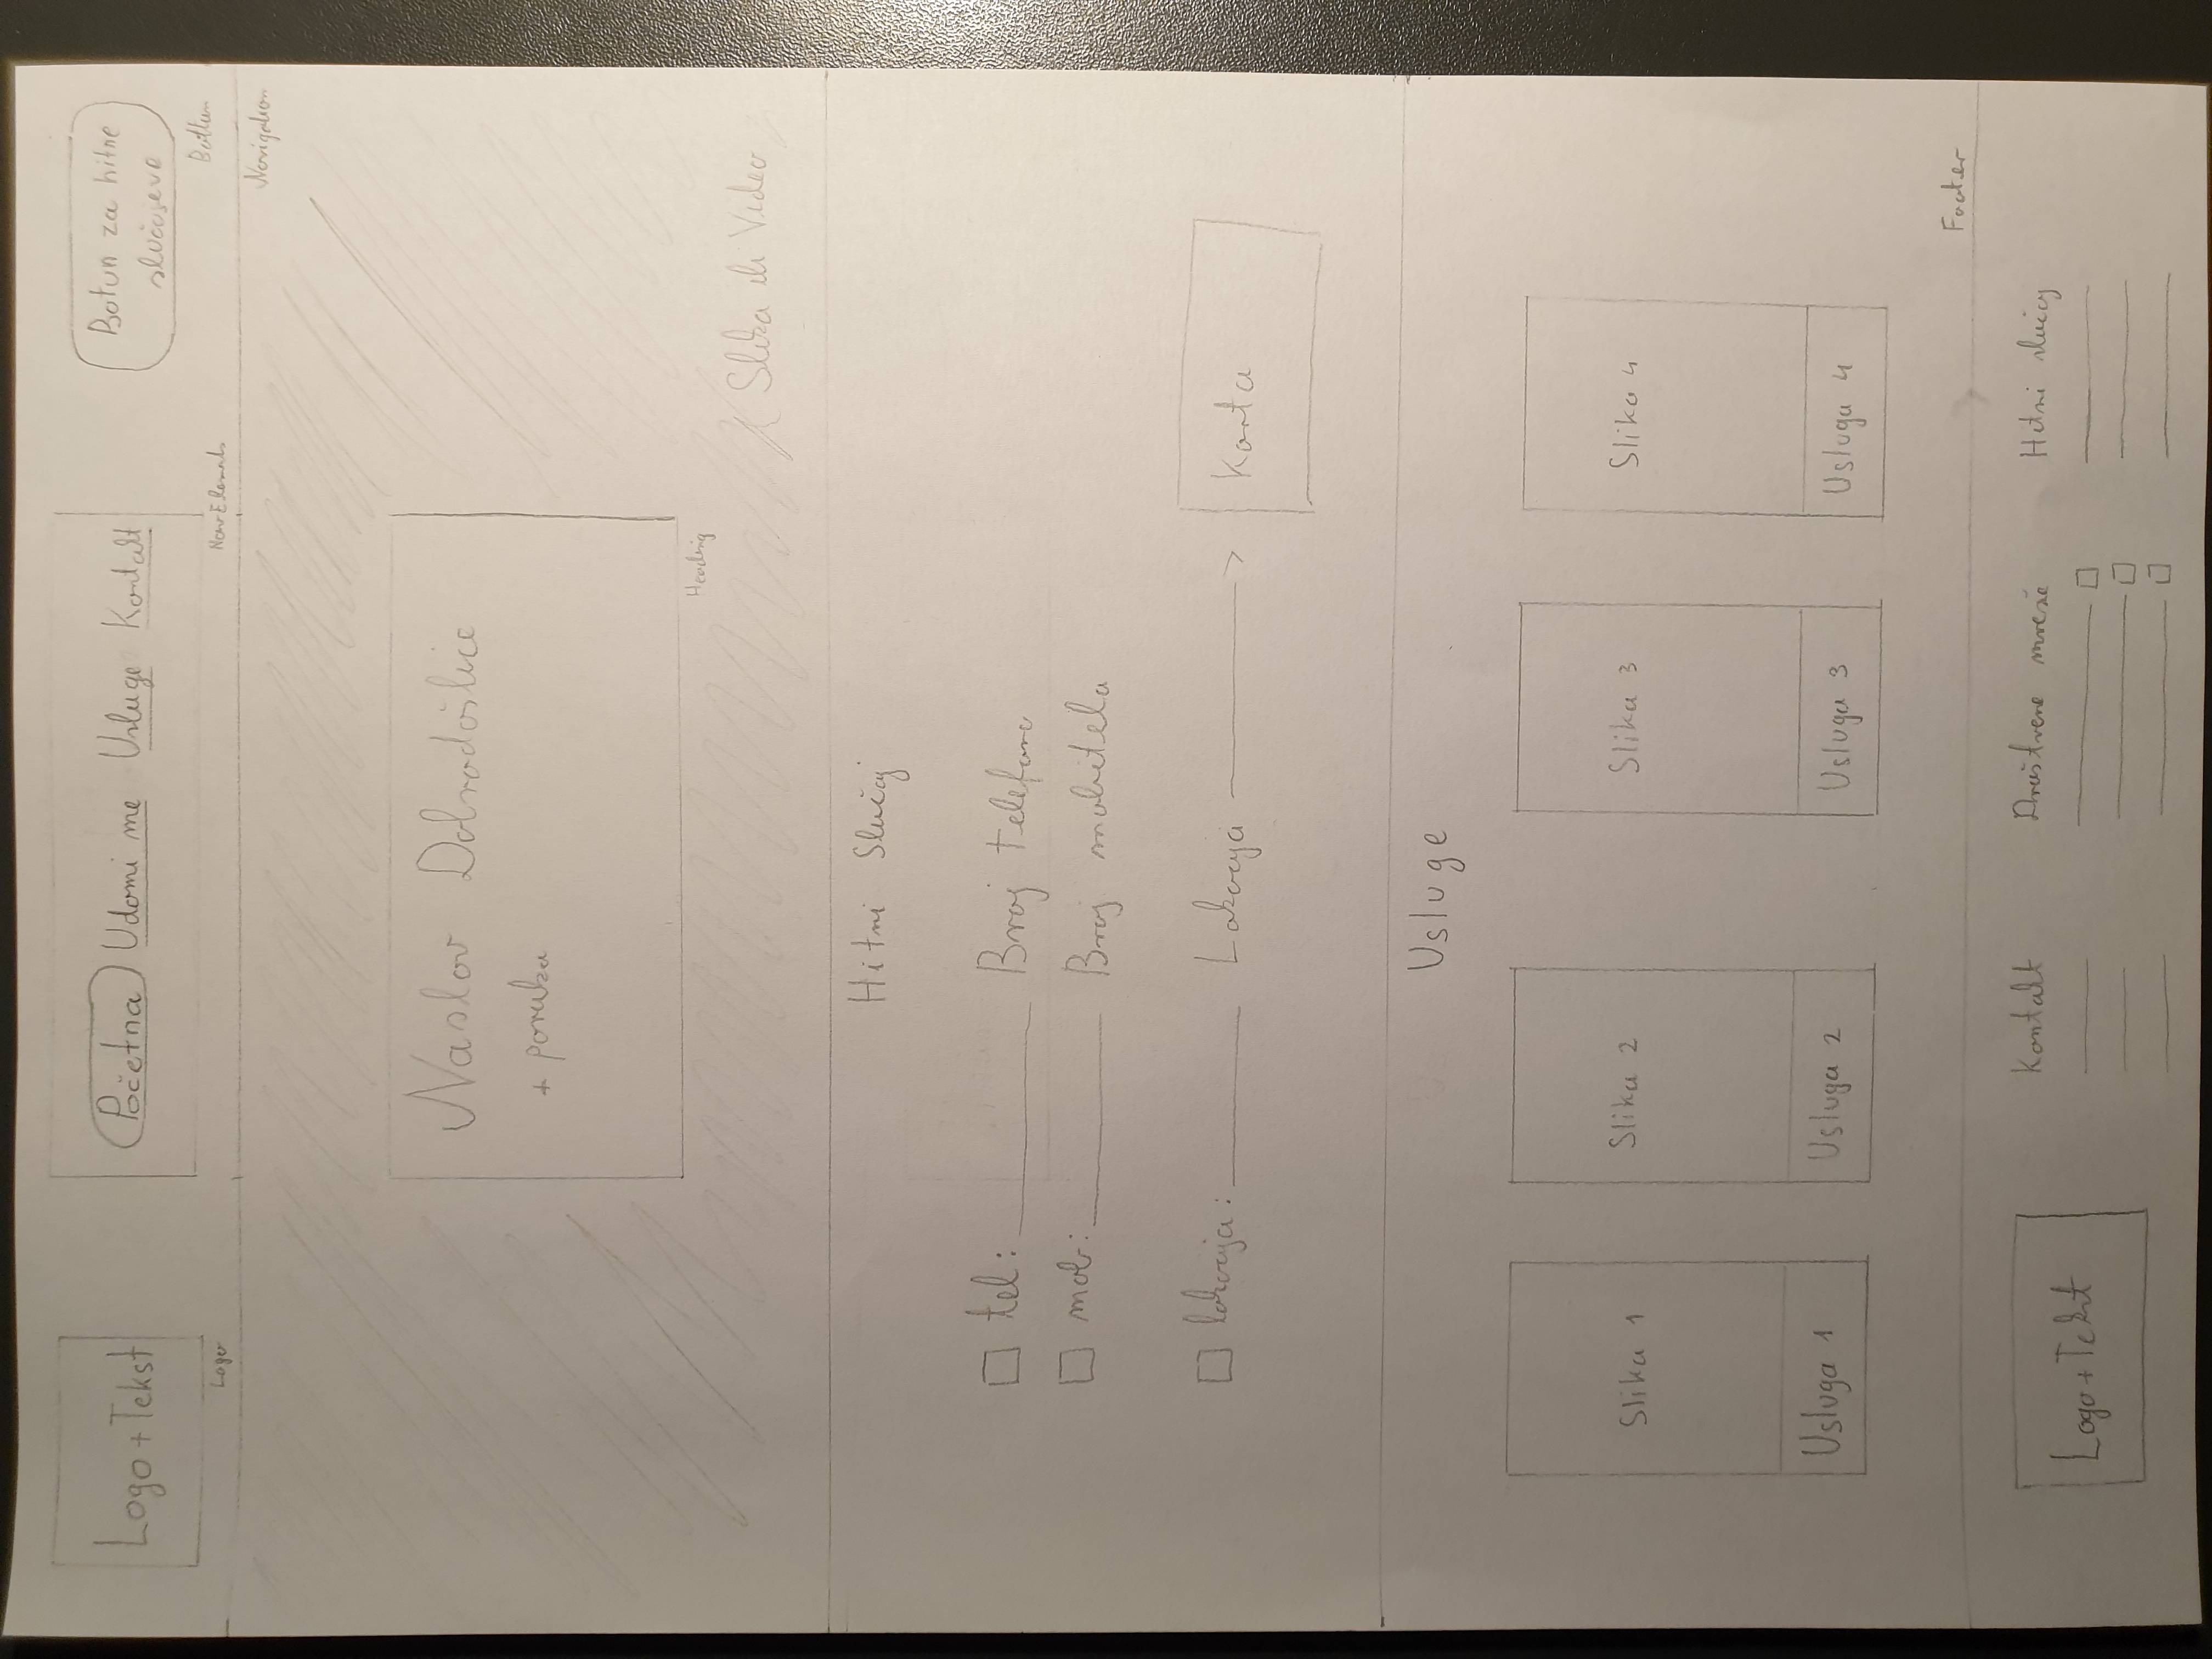 Logo + Tekst
Logo
Početna Udomi me Usluge Kontakt
Nav Elements
Botun za hitne
slučajeve
Button
Navigation
Naslov Dobrodošlice
+ poruka
Heading
Slika ili Video
Hitni Slučaj
tel: Broj telefona
mob: Broj mobitela
lokacija: Lokacija
Karta
Usluge
Slika 1
Slika 2
Slika 3
Slika 4
Usluga 1
Usluga 2
Usluga 3
Usluga 4
Footer
Logo + Tekst
Kontakt
Društvene mreže
Hitni slučaj